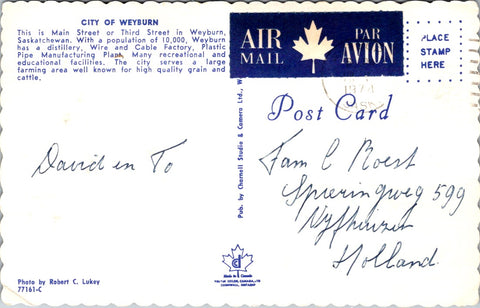 CITY OF WEYBURN
This is Main Street or Third Street in Weyburn,
Saskatchewan. With a population of 10,000, Weyburn
has a distillery, Wire and Cable Factory, Plastic
Pipe Manufacturing Plant, Many recreational and
educational facilities. The city serves a large
farming area well known for high quality grain and
cattle.
AIR MAIL
PAR AVION
PLACE
STAMP
HERE
Post Card
Pub. by Charnell Studio & Camera Ltd., W
David en To
Fam C Roest
Spieringweg 599
Vijfhuizen
Holland
Made in Canada
Photo by Robert C. Lukey
77161-C